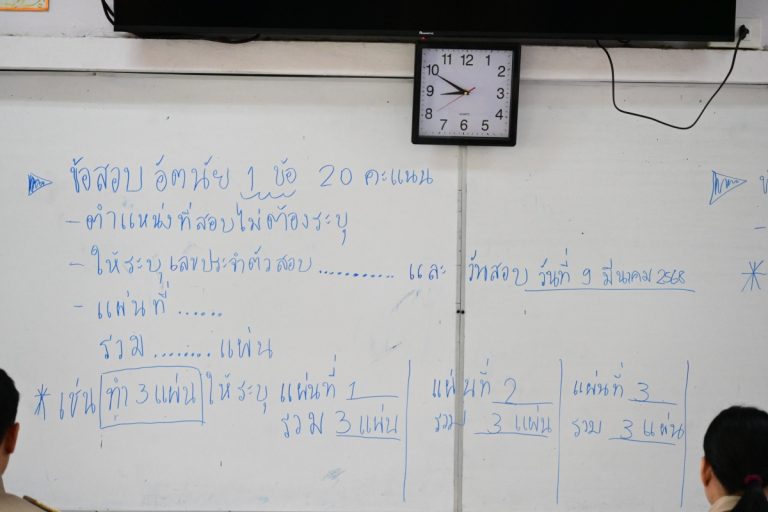 ข้อสอบ อัตนัย 1 ข้อ 20 คะแนน
- ตำแหน่งที่สอบไม่ต้องระบุ
- ให้ระบุเลขประจำตัวสอบ ........... และ วันสอบ วันที่ 9 มีนาคม 2568
- แผ่นที่ ......
รวม ........ แผ่น
* เช่น ทำ 3 แผ่น ให้ระบุ แผ่นที่ 1 แผ่นที่ 2 แผ่นที่ 3
รวม 3 แผ่น รวม 3 แผ่น รวม 3 แผ่น
12
1
2
3
4
5
6
7
8
9
10
11